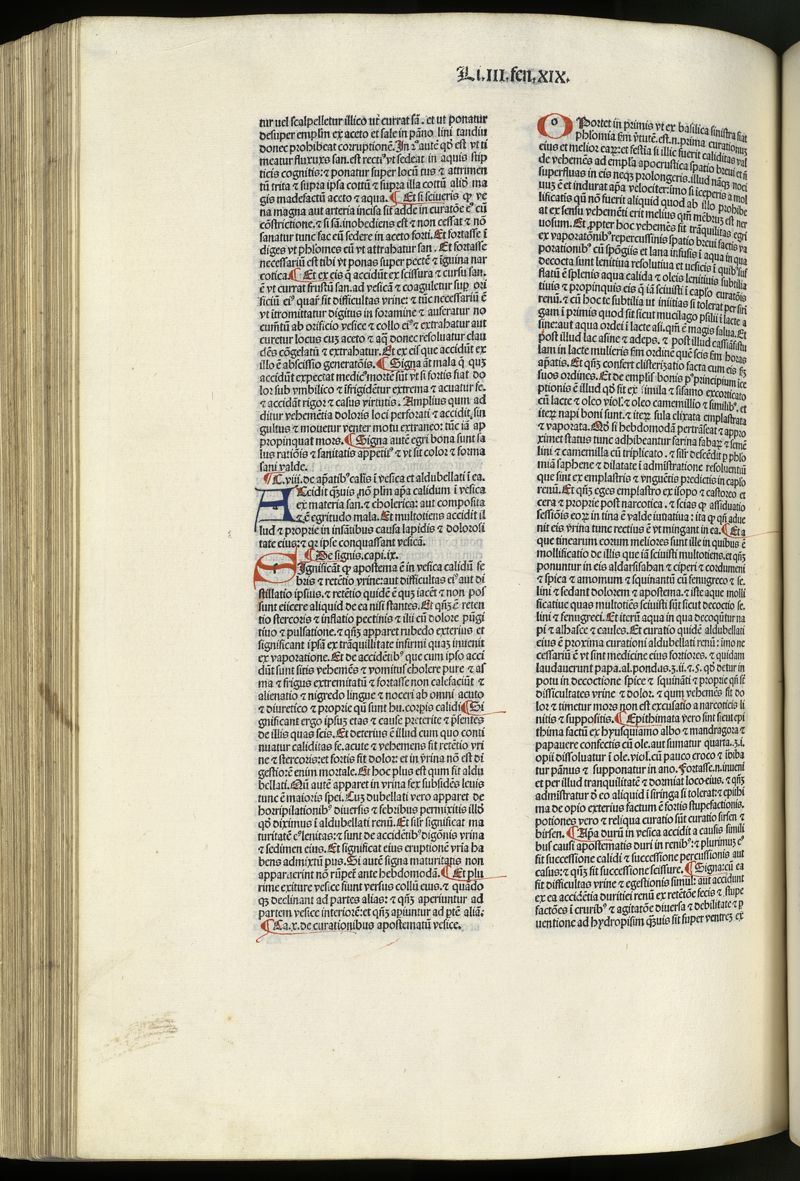 Li.III.fen.XIX.
tur uel scalpelletur illico ut currat sã. et ut ponatur
desuper emplm̃ ex aceto et sale in pãno lini tandiu
donec prohibeat corruptionẽ. In 2ª autẽ qđ est ut ti
meatur fluxuxs san. est rectiꝰ ut sedeat in aquis stip
ticis cognitis: ⁊ ponatur super locũ tus ⁊ attrimen
tũ trita ⁊ supra ipsa cottũ ⁊ supra illa cottũ aliđ ma
gis madefactũ aceto ⁊ aqua. ¶ Et si sciueris qꝫ ve
na magna aut arteria incisa sit adde in curatõe eiꝰ cũ
cõstrictione. ⁊ si sã. inobediens est ⁊ non cessat ⁊ nõ
sanatur tunc fac eũ sedere in aceto forti. Et fortasse ĩ
diges ut phlomes eũ ut attrahatur san. Et fortasse
necessariũ est tibi ut ponas super pectẽ ⁊ ĩguina nar
cotica. ¶ Et ex eis q̃ accidũt ex scissura ⁊ cursu san.
ẽ ut currat frustũ san. ad vesicã ⁊ coaguletur sup ori
ficiũ eiꝰ quar̃ sit difficultas vrine: ⁊ tũc necessariũ ẽ
ut ĩtromittatur digitus in foramine ⁊ auferatur no
cumẽtũ ab orificio vesice ⁊ collo eiꝰ ⁊ extrahatur aut
curetur locus cuꝫ aceto ⁊ aq̃ donec resoluatur clau
dẽs cõgelatũ ⁊ extrahatur. Et ex eis que accidũt ex
illo ẽ abscissio generatõis. ¶ Signa ãt mala q̃ quꝫ
accidũt expectat medicꝰ mortẽ sũt ut si fortis fiat do
lor sub vmbilico ⁊ ĩfrigidẽtur extrema ⁊ acuatur fe.
⁊ accidãt rigor ⁊ casus virtutis. Amplius qum ad
ditur vehemẽtia doloris loci perforati ⁊ accidit sin
gultus ⁊ mouetur venter motu extraneo: tũc iã ap
propinquat mors. ¶ Signa autẽ egri bona sunt sa
lus ratiõis ⁊ sanitatis appetitꝰ ⁊ ut sit color ⁊ forma
sani valde.
¶ C.viii.de ap̃atibꝰ calis ĩ vesica et aldubellati ĩ ea.
Accidit qñꝫuis nõ plm̃ ap̃a calidum ĩ vesica
ex materia san. ⁊ cholerica: aut composita
⁊ ẽ egritudo mala. Et multotiens accidit il
lud ⁊ proprie in infãtibus causa lapidis ⁊ dolorosi
tate eius: ⁊ qꝛ ipse conquassant vesicã.
¶ De signis.capi.ix.
Significãt qꝫ apostema ẽ in vesica calidũ fe
bris ⁊ retẽtio vrine: aut difficultas eiꝰ aut di
stillatio ipsius. ⁊ retẽtio quidẽ ẽ quꝫ iacẽt ⁊ non pos
sunt eiicere aliquid de ea nisi stantes. Et qñꝫ ẽ reten
tio stercoris ⁊ inflatio pectinis ⁊ ilii cũ dolore pũgi
tiuo ⁊ pulsatione. ⁊ qñꝫ apparet rubedo exterius et
significant ipsã ex trãquillitate infirmi quaꝫ inuenit
ex vaporatione. Et de accidẽtibꝰ que cum ipso acci
dũt sunt sitis vehemẽs ⁊ vomitus cholere pure ⁊ as
ma ⁊ frigus extremitatũ ⁊ fortasse non calefaciũt ⁊
alienatio ⁊ nigredo lingue ⁊ noceri ab omni acuto
⁊ diuretico ⁊ proprie qñ sunt hu. corpis calidi ¶ Si
gnificant ergo ipsuꝫ etas ⁊ cause preterite ⁊ p̃sentes
de illis quas scis. Et deterius ẽ illud cum quo conti
nuatur caliditas fe. acute ⁊ vehemens fit retẽtio vri
ne ⁊ stercoris: et fortis fit dolor: et in vrina nõ est di
gestio: ẽ enim mortale. Et hoc plus est qum fit aldu
bellati. Qñ autẽ apparet in vrina sex subsidẽs leuis
tunc ẽ maioris spei. Cuꝫ dubellati vero apparet de
horripilationibꝰ diuersis ⁊ febribus permixtis illđ
qđ diximus ĩ aldubellati renũ. Et silr̃ significat ma
turitatẽ eꝰ lenitas: ⁊ sunt de accidẽtibꝰ digõnis vrina
⁊ sedimen eius. Et significat eius eruptionẽ vrĩa ha
bens admixtũ pus. Si autẽ signa maturitatis non
apparuerint nõ rũpet̃ ante hebdomodã. ¶ Et plu
rime exiture vesice fiunt versus collũ eius. ⁊ quãdoqꝫ
declinant ad partes alias: ⁊ qñꝫ aperiuntur ad
partem vesice interiorẽ: et qñꝫ apiuntur ad ptẽ aliã.
¶ Ca.x.de curationibus apostematũ vesice.
OPortet in primis ut ex basilica sinistra fiat
phlomia fm̃ v̓tutẽ. est. n. prima curationuꝫ
eius et melior eaꝝ: et festĩa si illic fuerit caliditas val
de vehemẽs ad emplã apocrustica spatio breui et si
superfluas in eis neqꝫ prolongeris. illud nãqꝫ noci
uuꝫ ẽ et indurat ap̃a velociter: imo si iceperis a mol
lificatis qñ nõ fuerit aliquid quod ab illo prohibe
at ex sensu vehemẽti erit melius qm̃ mẽbrum est ner
uosum. Et ꝓpter hoc vehemẽs sit trãquillitas egri
ex vaporatõnibꝰ repercussiuis spatio breui factis va
porationibꝰ cũ spõgiis et lana infusis ĩ aqua in qua
decocta sunt lenitiua resolutiua et vesicis ĩ quibꝰ suf
flatũ ẽ splenis aqua calida ⁊ oleis lenitiuis subtilia
tiuis ⁊ propinquis eis q̃ iã sciuisti ĩ capło curatõis
renũ. ⁊ cũ hoc te subtilia ut iniitias si tolerat per siri
gam ĩ primis quod sit sicut mucilago psilii ĩ lacte a
sine: aut aqua ordei ĩ lacte asi. qñ ẽ magis salua. Et
post illud lac asine ⁊ adeps. ⁊ post illud cassiãfistu
lam in lacte mulieris fm̃ ordinẽ quẽ scis fm̃ horas
ap̃atis. Et qñꝫ confert clisterizatio facta cum eis fm̃
suos ordines. Et de emplis̃ bonis pꝰ principium ice
ptionis ẽ illud qđ fit ex simila ⁊ sisamo excorticato
cũ lacte ⁊ oleo viol. ⁊ oleo camemillio ⁊ similibꝰ. et
iteꝝ napi boni sunt. ⁊ iteꝝ sula elixata emplastrata
⁊ vaporata. Qđ si hebdomodã pertrãseat ⁊ appro
ximet status tunc adhibeantur farina fabaꝝ ⁊ semẽ
lini ⁊ camemilla cũ triplicato. ⁊ silr̃ descẽdit p̃ phlo
miã saphene ⁊ dilatate ĩ admĩstratione resoluentiũ
que sunt ex emplastris ⁊ vnguẽtis predictis in capło
renũ. Et qñꝫ eges emplastro ex isopo ⁊ castoreo et
cera ⁊ proprie post narcotica. ⁊ scias qꝫ assiduatio
sessiõis eoꝝ in tina ẽ valde iuuatiua: ita qꝫ qñ adue
nit eis vrina tunc rectius ẽ ut mingant in ea. ¶ Et a
que tinearum eorum meliores sunt ille in quibus ẽ
mollificatio de illis que iã sciuisti multotiens. et qñꝫ
ponuntur in eis aldarsisahan ⁊ ciperi ⁊ cordumeni
⁊ spica ⁊ amomum ⁊ squinantũ cũ fenugreco ⁊ se.
lini ⁊ sedant dolorem ⁊ apostema. ⁊ iste aque molli
ficatiue quas multotiẽs sciuisti sũt sicut decoctio se.
lini ⁊ fenugreci. Et iterũ aqua in qua decoquũtur na
pi ⁊ alhasce ⁊ caules. Et curatio quidẽ aldubellati
eius ẽ proxima curationi aldubellati renũ: imo ne
cessariũ ẽ ut sint medicine eius fortiores. ⁊ quidam
laudauerunt papa. al. pondus. ʒ.ii. ⁊ 5. qđ detur in
potu in decoctione spice ⁊ squinãti ⁊ proprie qñ sit
difficultates vrine ⁊ dolor. ⁊ qum vehemẽs sit do
lor ⁊ timetur mors non est excusatio a narcoticis li
nitis ⁊ suppositis. ¶ Epithimata vero sint sicut epi
thima factũ ex hysquiamo albo ⁊ mandragora ⁊
papauere confectis cũ ole. aut sumatur quarta. ʒ.i.
opii dissoluatur ĩ ole. viol. cũ pauco croco ⁊ ĩbiba
tur pãnus ⁊ supponatur in ano. Fortasse. n. inueni
et per illud tranquilitatẽ ⁊ dormiat loco eius. ⁊ qñꝫ
admĩstratur đ eo aliquid ĩ siringa si tolerat: ⁊ epithi
ma de opio exterius factum ẽ fortis stupefactionis.
potiones vero ⁊ reliqua curatio sũt curatio sirsen ⁊
birsen. ¶ Ap̃a durũ in vesica accidit a causis simili
bus causis apostematis duri in renibꝰ: ⁊ plurimuꝫ eꝰ
fit successione calidi ⁊ successione percussionis aut
casus: ⁊ qñꝫ fit successione scissure. ¶ Signa: cũ ea
sit difficultas vrine ⁊ egestionis simul: aut accidunt
ex ea accidẽtia duritiei renũ ex retẽtõe fecis ⁊ stupe
factões ĩ cruribꝰ ⁊ agitatõe diuersa ⁊ debilitate ⁊ p
uentione ad hydropisim qñꝫuis sit super ventreꝫ ex